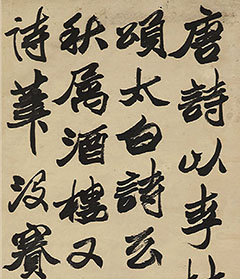 唐詩以李
頌太白詩云
秋属酒樓又
詩筆没賽